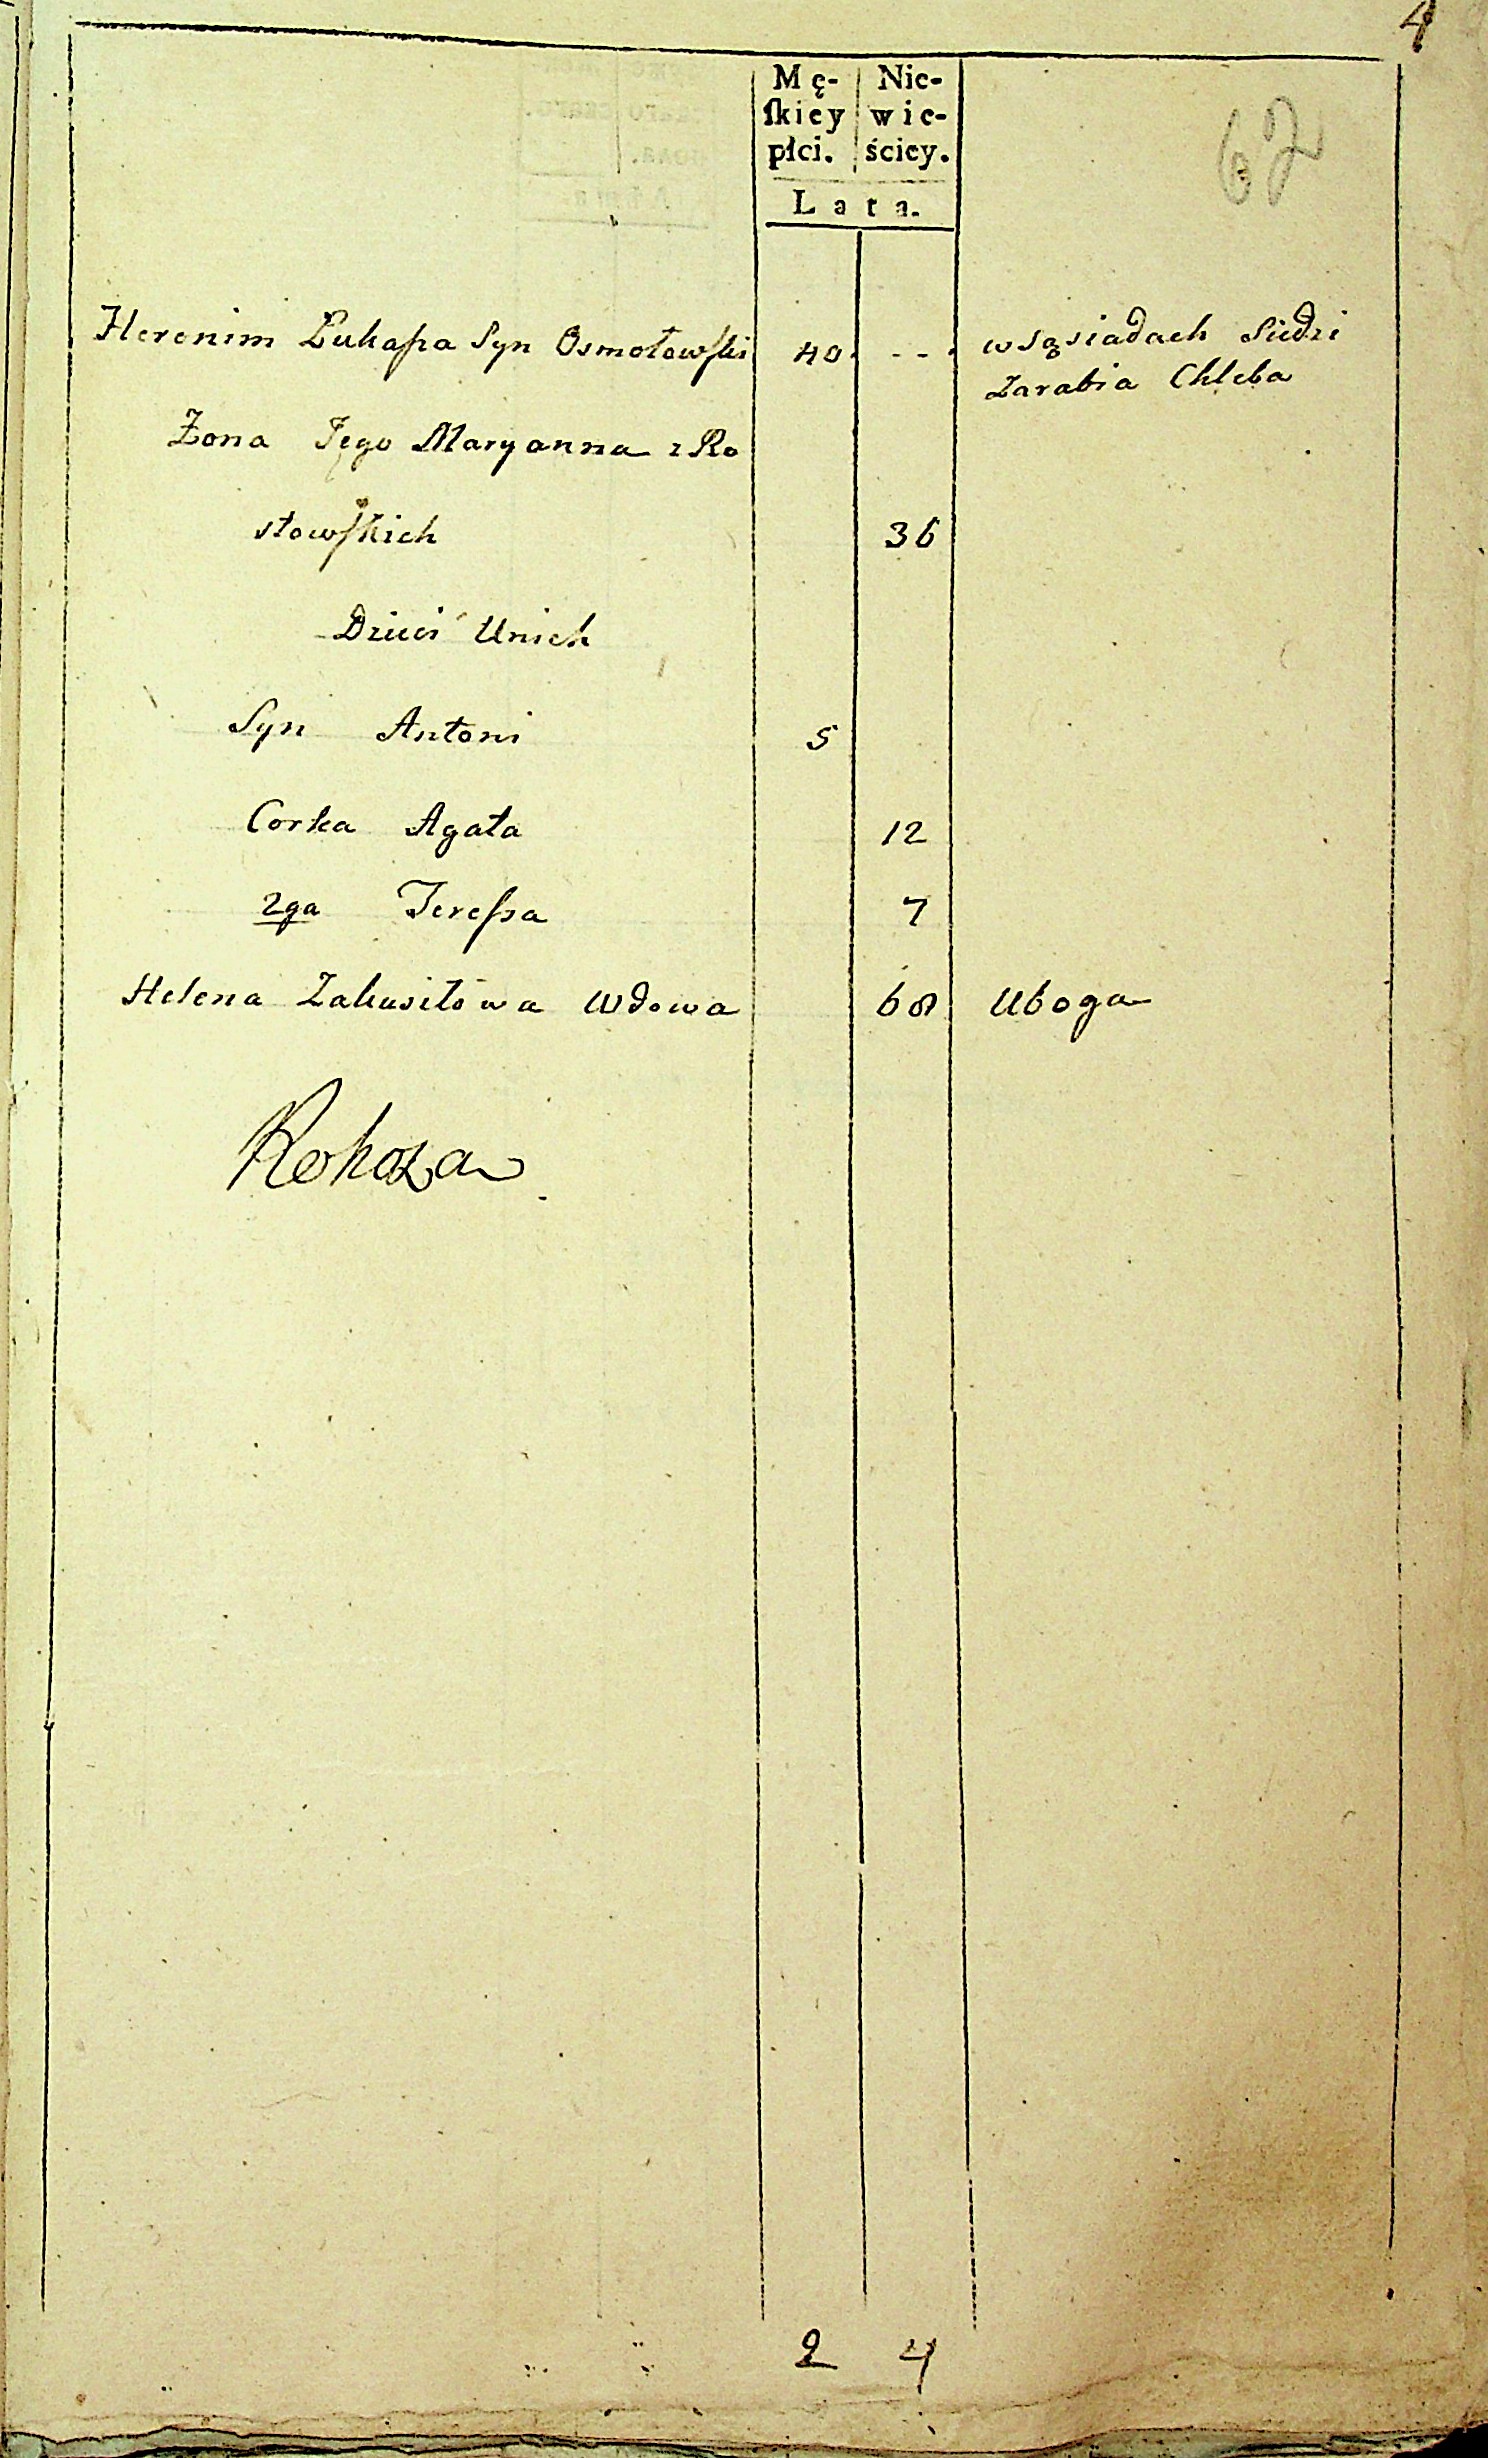 4
62
Mę- Nie-
ſkiey wie-
płci. ściey.
Lata.
Heronim Łukaſza Syn Osmołowſki 40 - - - w sąsiadach Siedzi
Zarabia Chleba
Żona Jego Maryanna z Ro
stowſkich 36
Dzieci Unich
Syn Antoni 5
Corka Agata 12
2ga Tereſsa 7
Helena Zakusiłowa Wdowa 68 Uboga
Rohoza
2 4